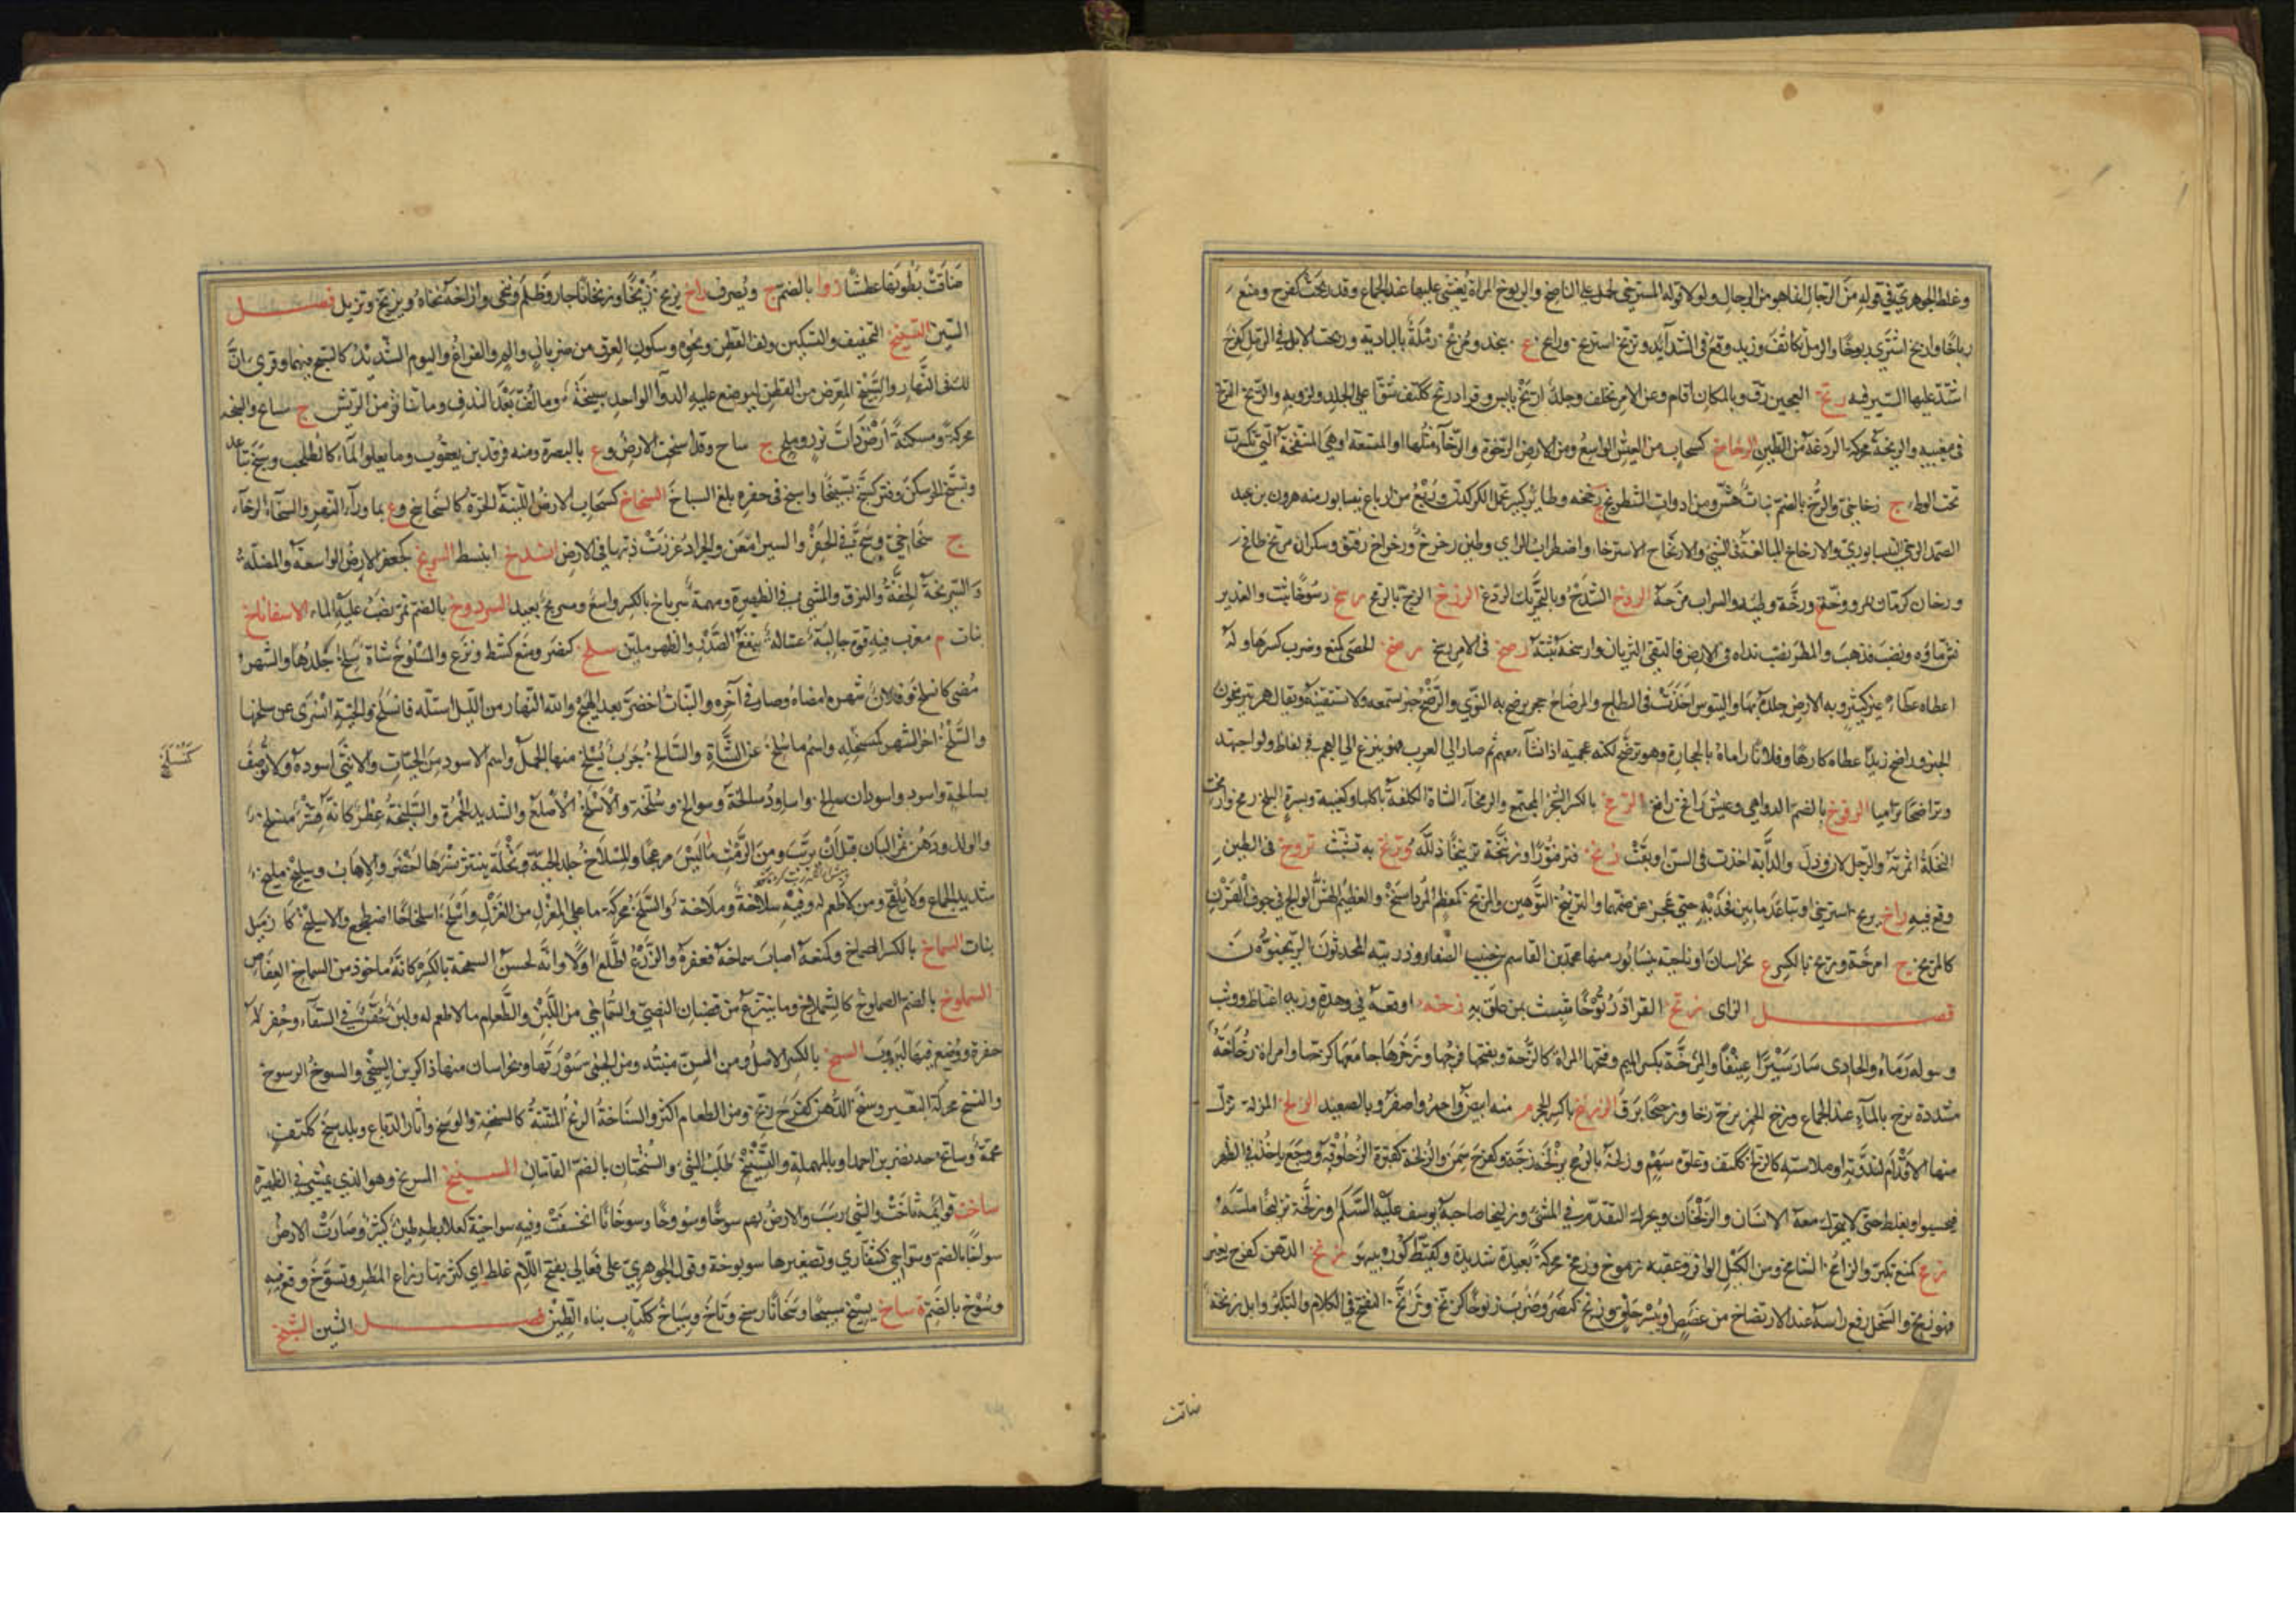 وغلط الجوهري في قوله من الرجال انما هو من الرجال ولولا قوله المسترخي لحمل على الناسخ والربوخ المراة يغشى عليها عند الجماع وقد ربخت كفرح ومنع
رباخا واربخ اشترى ربوخا والرمل تكاثف وزيد وقع في الشدايد وتربخ استرخى ورابخ ع بنجد ومربخ رملة بالبادية وربخت الابل في الرمل كفرح
اشتد عليها السير فيه رتخ العجين رق وبالمكان اقام وعن الامر تخلف وجلد ارتخ يابس وقراد رتخ ككتف شق اعلى الجلد ولزق به والرتخ
والرتخة محركة الردغة من الطين الرخاخ كسحاب من العيش الواسع ومن الارض الرخوة والرخاء مثلها او المتسعة او هي المنتفخة التي تكسرت
تحت الوطء ج رخاخي والرخ بالضم نبات هش ومن ادوات الشطرنج ج رخخة وطاير كبير يحمل الكركدن وربع من ارباع نيسابور منه هرون بن عبد
الصمد الرخي النيسابوري والارخاخ المبالغة في الشيء والارتخاخ الاسترخاء واضطراب الراي وطين رخرخ ورخراخ رقيق وسكران مرتخ طافح
ورخان كرمان ة بمرو ورخه وطئه والشراب مزجه الردخ الشدخ وبالتحريك الردغ الرزخ الزج بالرمح رسخ رسوخا ثبت والغدير
نش ماؤه ونضب فذهب والمطر نضب نداه في الارض فالتقى الثريان وارسخه اثبته رصخ في الامر رسخ رضخ الحصى كمنع وضرب كسرها وله
اعطاه عطاء غير كثير وبه الارض جلده بها والتيوس اخذت في النطاح والمرضاخ حجر يرضخ به النوى والرضخ خبر تسمعه ولا تستيقنه ويقال هم يترضخون
الخبز وراضخ زيدا اعطاه كارها وفلانا راماه بالحجارة وهو يرتضخ لكنة عجمية اذا نشا معهم ثم صار الى العرب فهو ينزع الى العجم في الفاظ ولو اجتهد
وتراضخا تراميا الرفوخ بالضم الدواهي وعيش رافخ رافغ الرمخ بالكسر الشجر المجتمع والرمخاء الشاة الكلفة باكلها وكعنبة وبسرة البلح رمخ وارمخت
النخلة اثمرته والرجل لان وذل والدابة اخذت في السن او يغت رنخ فتر فتورا ورنخه ترنيخا ذلله وترنخ به تشبث تروخ في الطين
وقع فيه راخ يريخ استرخى او تباعد ما بين فخذيه حتى عجز عن ضمهما والتريخ التوهين والمريخ كمعظم المرداسنج والعظيم الهش الوالج في جوف القرن
كالمريخ ج امرخة وريخ بالكسر ع بخراسان او ناحية بنيسابور منها محمد بن القاسم بن حبيب الصفار وذريته المحدثون الريخيون
فصل الزاى زتخ القراد زتوخا شبث بمن علق به زخه اوقعه في وهدة وزيد اغتاظ ووثب
وببوله رماه والحادي سار سيرا عنيفا والمزخة بكسر الميم وفتحها المراة كالزخة وبفتحها فرجها وزخزخها جامعها كزخها وامراة زخاخة
مشددة تزخ بالماء عند الجماع وزخ الجمر يزخ زخا وزخيخا برق الزرنيخ بالكسر حجر م منه ابيض واحمر واصفر وة بالصعيد الزلخ المزلة تزل
منها الاقدام لندوته او ملاسته كالزلخ ككتف وغلوة سهم وزلخه بالرمح يزلخه زجه وكفرح سمن والزلخة كقبرة الزحلوقة ووجع ياخذ في الظهر
فيجسو ويغلظ حتى لا يتحرك معه الانسان والزلخان ويحرك التقدم في المشي وزليخا صاحبة يوسف عليه السلام وزلخه تزليخا ملسه
زمخ كمنع تكبر والزامخ الشامخ ومن الكيل الوافي وعقبة زموخ وزمخ محركة بعيدة شديدة وكقبيط كورة ببيهق زنخ الدهن كفرح تغير
فهو زنخ والسخل رفع راسه عند الارتضاع من غصص او يبس حلق وزنخ كنصر وضرب زنوخا كزنخ وتزنخ التفتح في الكلام والتكبر وابل زنخة
ضاقت
ضاقت بطونها عطشا زواخ بالضم ع ويصرف زاخ يزيخ زيخا وزيخانا جار وظلم وتنحى وازاخه نحاه وتزيخ وتزيل فصل
السين التسبيخ التخفيف والتسكين ولف القطن ونحوه وسكون العرق من ضربان والم والفراغ والنوم الشديد كالسبخ فيهما وقرى ان
لك في النهار والسبيخ المعرض من القطن ليوضع عليه الدواء الواحدة سبيخة وما لف بعد الندف وما تناثر من الريش ج سبائخ والسبخة
محركة ومسكنة ارض ذات نز وملح ج سباخ وقد اسبخت الارض وع بالبصرة ومنه فرقد بن يعقوب وما يعلو الماء كالطحلب وسبخ تباعد
وتسبخ الحر سكن وفتر كسبخ تسبيخا واسبخ في حفره بلغ السباخ السخاخ كسحاب الارض اللينة الحرة كالسخاسخ وع بما وراء النهر والسخاء الرخاء
ج سخاخي وسخ في الحفر والسير امعن والجراد غرزت ذنبها في الارض انسدخ انبسط السربخ كجعفر الارض الواسعة والمضلة
والسربخة الخفة والنزق والمشي في الظهيرة ومهمه سرباخ بالكسر واسع ومسربخ بعيد السردوخ بالضم تمر يصب عليه الماء الاسفاناخ
نبات م معرب فيه قوة جالية غسالة ينفع الصدر والظهر ملين سلخ كنصر ومنع كشط ونزع والمسلوخ شاة سلخ جلدها والشهر
مضى كانسلخ وفلان شهره امضاه وصار في آخره والنبات اخضر بعد الهيج والله النهار من الليل استله فانسلخ والحية انسرى عن سلختها
والسلخ آخر الشهر كمنسلخه واسم ما سلخ عن الشاة والسالخ جرب يسلخ منها الجمل واسم الاسود من الحيات والانثى اسودة ولا توصف
كمنسلخه
بسالخة واسود واسودان سالخ واساود سالخة وسوالخ وسلخ وسلخة والاسلخ الاصلع والشديد الحمرة والسليخة عطر كانه قشر منسلخ
والولد ودهن ثمر البان قبل ان يربب ومن الرمث ما ليس مرعى والمسلاخ جلد الحية ونخلة ينتثر بسرها اخضر والاهاب وسليخ مليخ
شديد الجماع ولا يلقح ومن لا طعم له وفيه سلاخة وملاخة والسلخ محركة ما على المغزل من الغزل واسلخ اسلخاخا اضطجع والاسليخ كازميل
نبات السماخ بالكسر الصماخ وكمنعه اصاب سماخه فعقره والزرع اطلع اولا وانه لحسن السمخة بالكسر كانه ماخوذ من السماخ العفاص
السملوخ بالضم الصملوخ كالسملاخ وما ينتزع من قضبان النصي والسمالخي من اللبن والطعام ما لا طعم له ولبن حقن في السقاء وحفر له
حفرة ووضع فيها ليروب السنخ بالكسر الاصل ومن السن منبته ومن الحمى سورتها وة بخراسان منها ذاكر بن السنخي والسنوخ الرسوخ
والسنخ محركة التغير وسنخ الدهن كفرح زنخ ومن الطعام اكثر والسناخة الريح المنتنة كالسنخة والوسخ وآثار الدباغ وبلد سنخ ككتف
محمة وسانخ جد نصر بن احمد او بالمهملة والتسنيخ طلب الشيء والسنختان بالضم القامتان المسنبخ المسربخ وهو الذي يمشي في الظهيرة
ساخت قوائمه ثاخت والشيء رسب والارض بهم سوخا وسووخا وسوخانا انخسفت وفيه سواخية كعلابطية طين كثير وصارت الارض
سواخا بالضم وسواخى كشقارى وتصغيرها سويوخة وقول الجوهري على فعالى بفتح اللام غلط اي كثر بها رزاغ المطر وتسوخ وقع فيه
وسوخ بالضم ة ساخ يسيخ سيخا وسيخانا رسخ وثاخ وسياخ ككتاب بناء الطين فصل الشين الشبخ